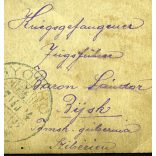 Kriegsgefangener
Zugsführer
Baron Sándor
Bijsk
Tomsk. gubernia
Sibirien